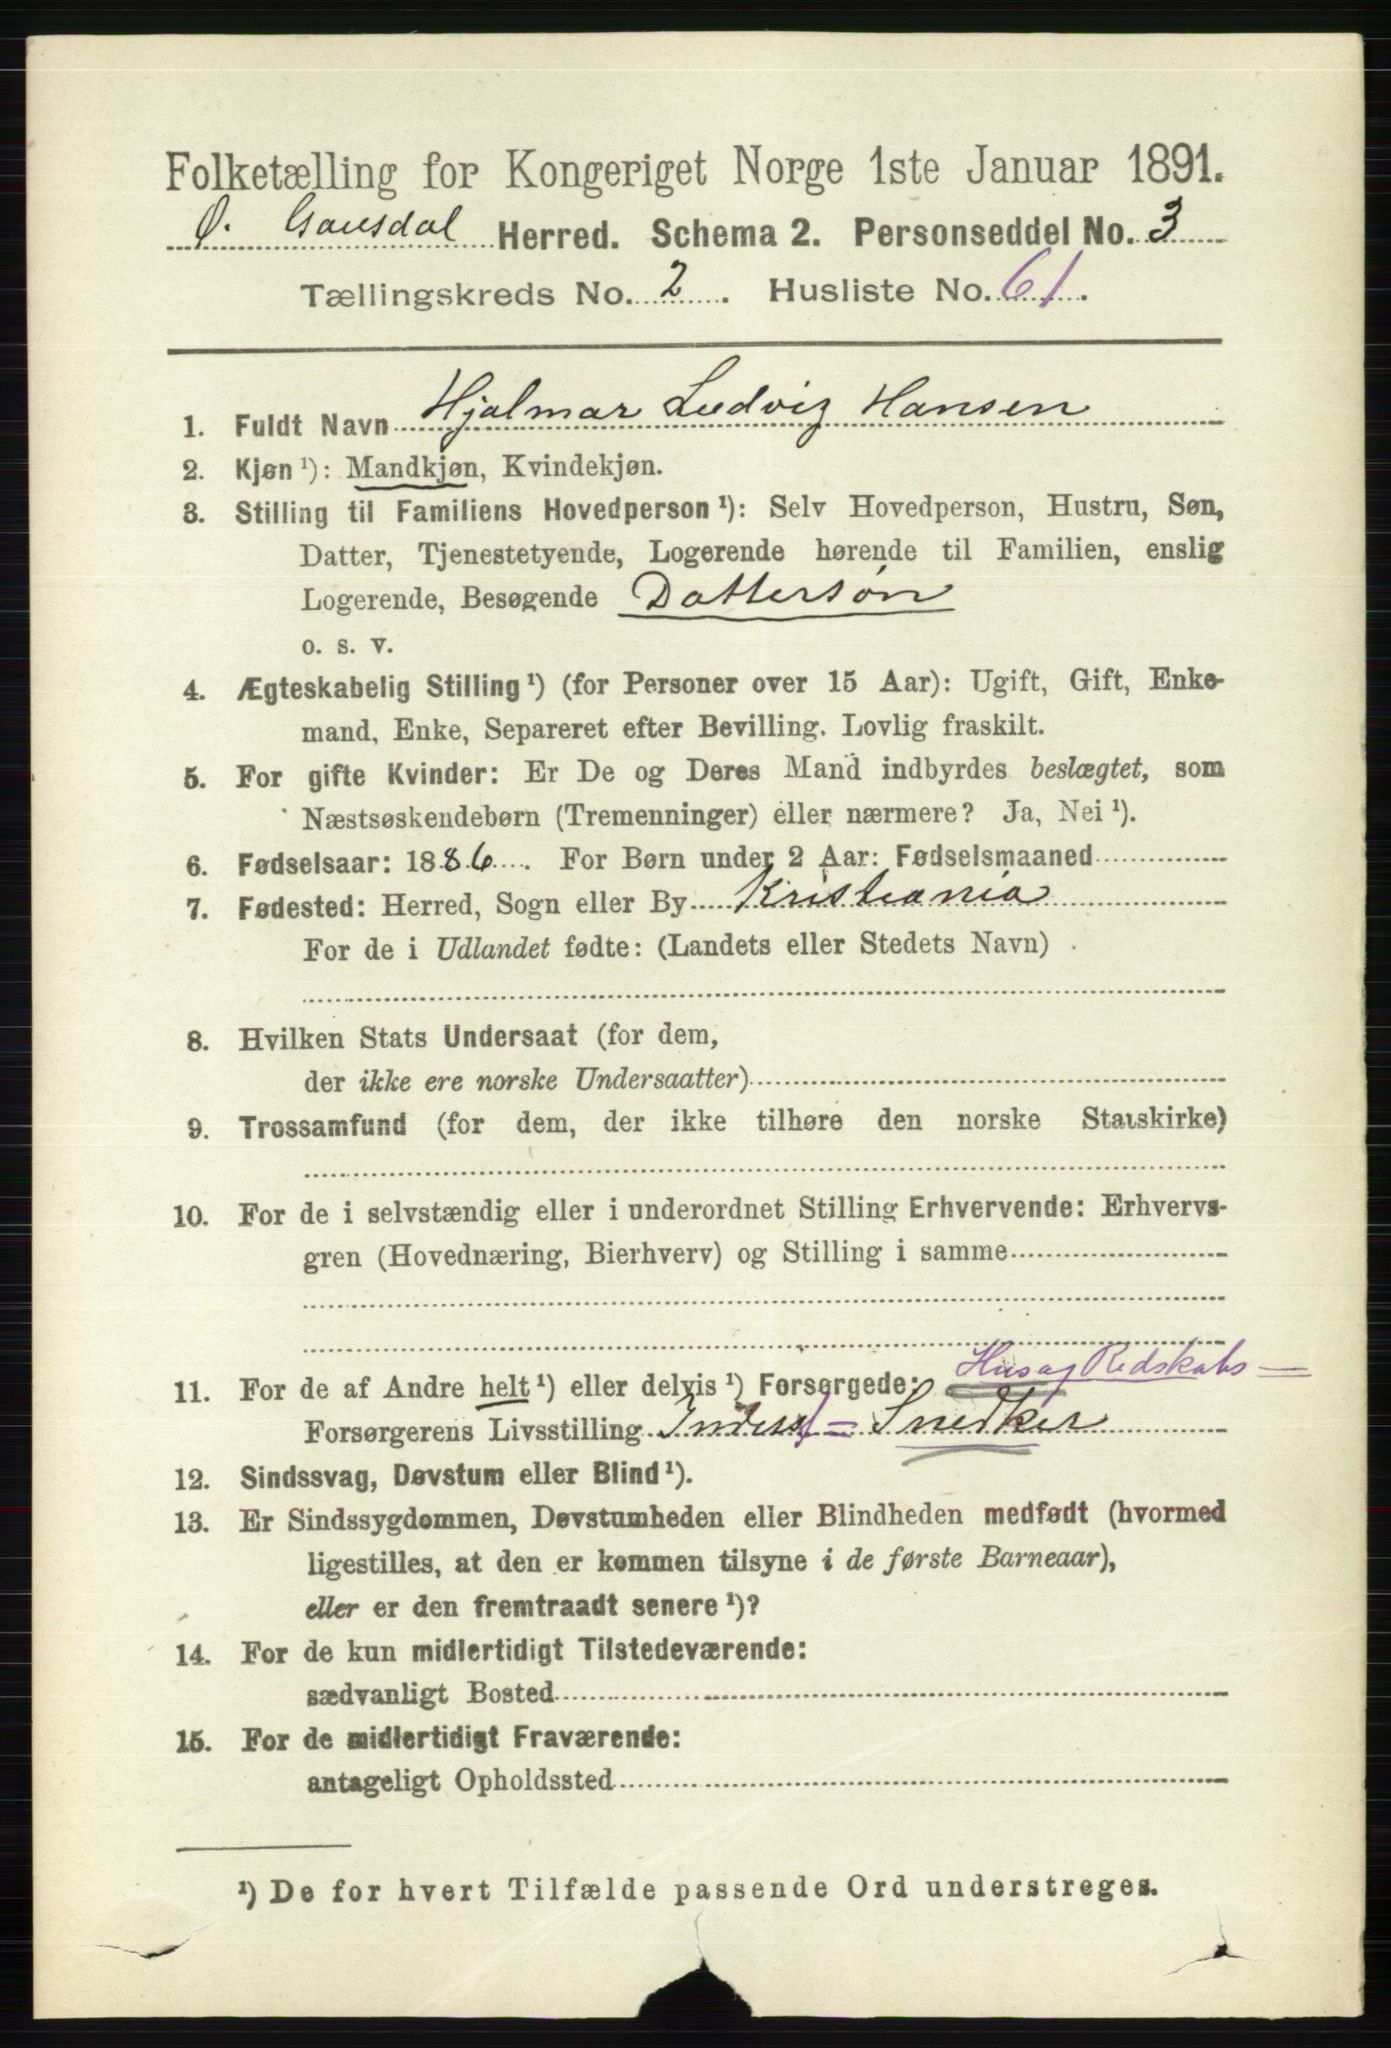 Folketælling for Kongeriget Norge 1ste Januar 1891.
Ø. Gausdal Herred. Schema 2. Personseddel No. 3
Tællingskreds No. 2. Husliste No. 61.
1. Fuldt Navn Hjalmar Ludvig Hansen
2. Kjøn ¹): Mandkjøn, Kvindekjøn.
3. Stilling til Familiens Hovedperson ¹): Selv Hovedperson, Hustru, Søn,
Datter, Tjenestetyende, Logerende hørende til Familien, enslig
Logerende, Besøgende Dattersøn
o. s. v.
4. Ægteskabelig Stilling ¹) (for Personer over 15 Aar): Ugift, Gift, Enke-
mand, Enke, Separeret efter Bevilling. Lovlig fraskilt.
5. For gifte Kvinder: Er De og Deres Mand indbyrdes beslægtet, som
Næstsøskendebørn (Tremenninger) eller nærmere? Ja, Nei ¹).
6. Fødselsaar: 1886. For Børn under 2 Aar: Fødselsmaaned
7. Fødested: Herred, Sogn eller By Kristiania
For de i Udlandet fødte: (Landets eller Stedets Navn)
8. Hvilken Stats Undersaat (for dem,
der ikke ere norske Undersaatter)
9. Trossamfund (for dem, der ikke tilhøre den norske Statskirke)
10. For de i selvstændig eller i underordnet Stilling Erhvervende: Erhvervs-
gren (Hovednæring, Bierhverv) og Stilling i samme
Husog Redskabs=
11. For de af Andre helt ¹) eller delvis ¹) Forsørgede:
Forsørgerens Livsstilling Inderst = Snedker
12. Sindssvag, Døvstum eller Blind ¹).
13. Er Sindssygdommen, Døvstumheden eller Blindheden medfødt (hvormed
ligestilles, at den er kommen tilsyne i de første Barneaar),
eller er den fremtraadt senere ¹)?
14. For de kun midlertidigt Tilstedeværende:
sædvanligt Bosted
15. For de midlertidigt Fraværende:
antageligt Opholdssted
¹) De for hvert Tilfælde passende Ord understreges.